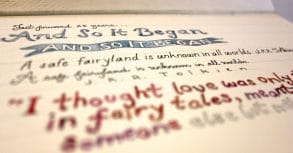 Fast forward 20 years...
And So It Began
AND SO IT BEGAN
A safe fairyland is unknown in all worlds. J.R.R. Tolkien
A safe fairyland is unknown in all worlds.
J. R. R. TOLKIEN
"I thought love was only
in fairy tales, meant
someone else